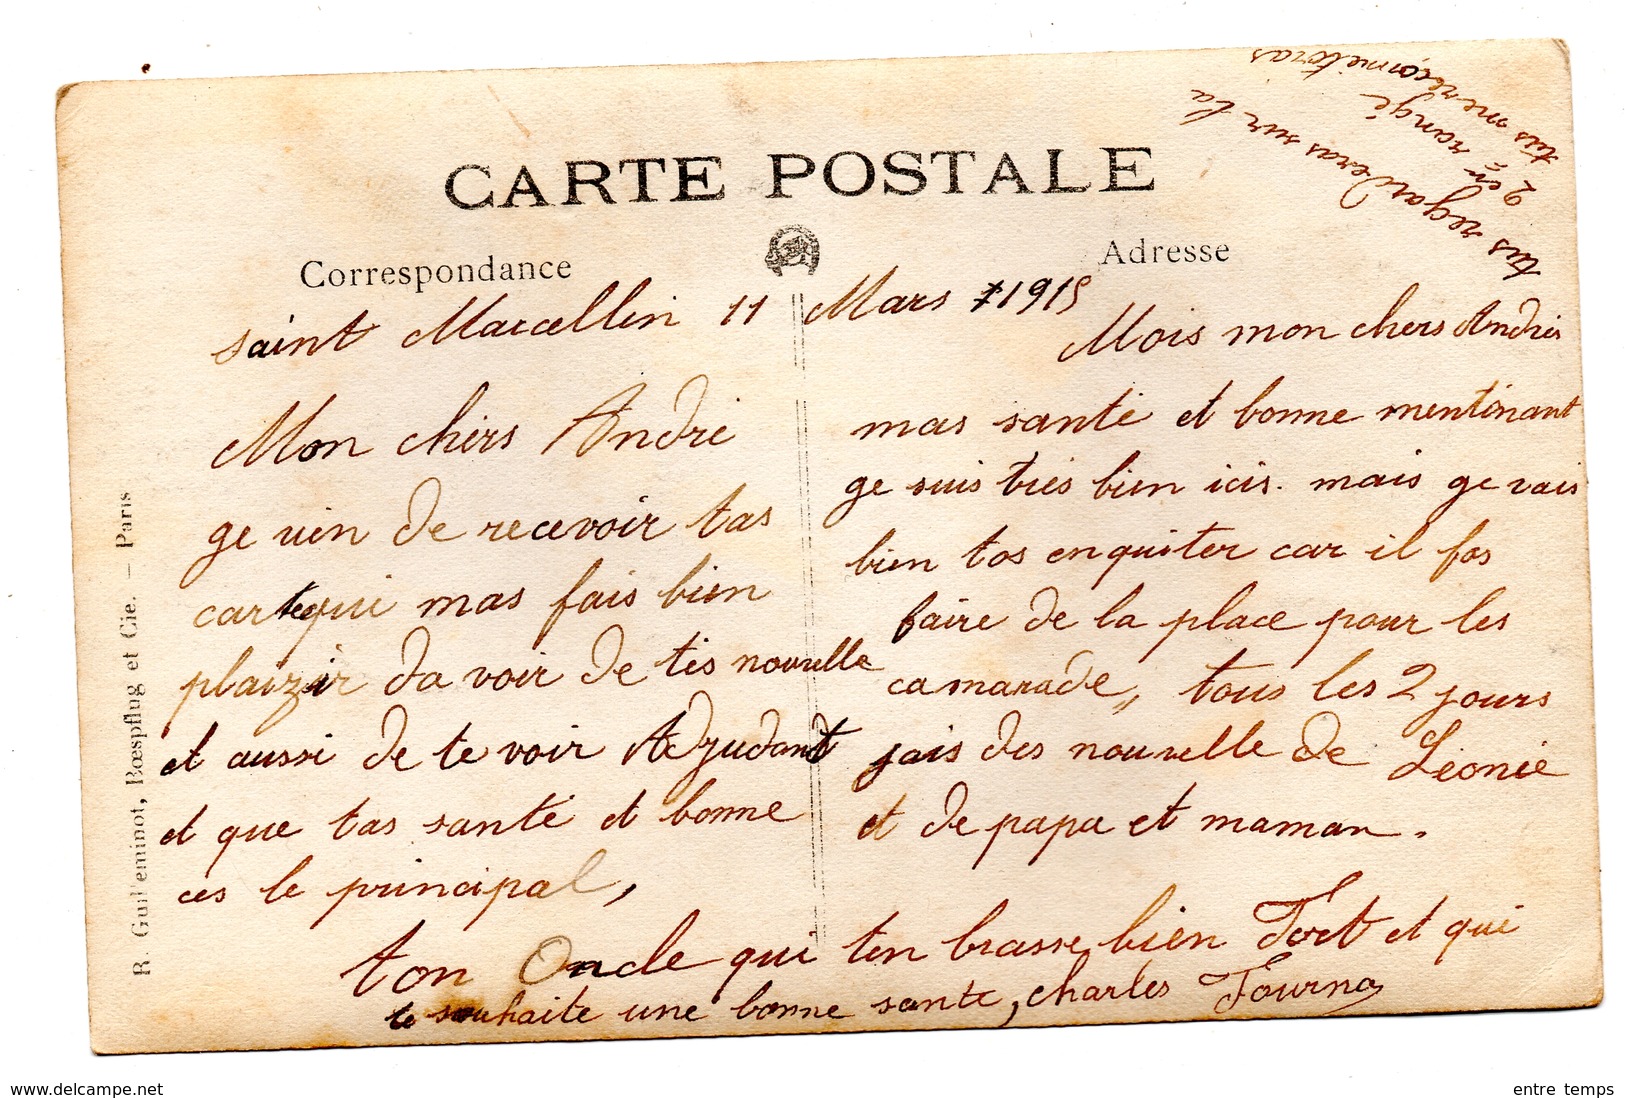 CARTE POSTALE
Correspondance
Adresse
tus regarderas sur la
2 em rangé
tus me reconnetoras
saint Marcellin 11 Mars 1915
Mon chers André
ge vien de recevoir tas
carte qui mas fais bien
plaizir da voir de tes nouvelle
et aussi de te voir Adzudant
et que tas santé et bonne
ces le principal,
Mois mon chers André
mas santé et bonne mentinant
ge suis tres bien icis. mais ge vais
bien tos enquiter car il fos
faire de la place pour les
camarade, tous les 2 jours
jais des nouvelle de Léonie
et de papa et maman.
ton Oncle qui ten brasse bien Fort et qui
te souhaite une bonne sante, charles Fournа
R. Guilleminot, Bœspflug et Cie. — Paris
www.delcampe.net
entre temps